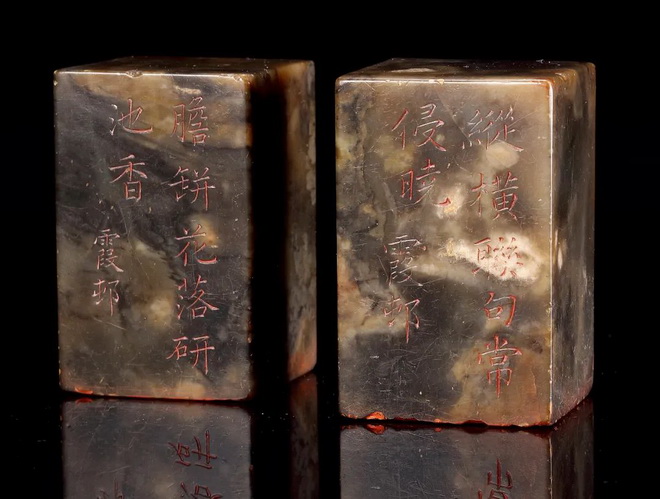 縱橫聯句常
侵曉 霞邨
膽缾花落研
池香 霞邨